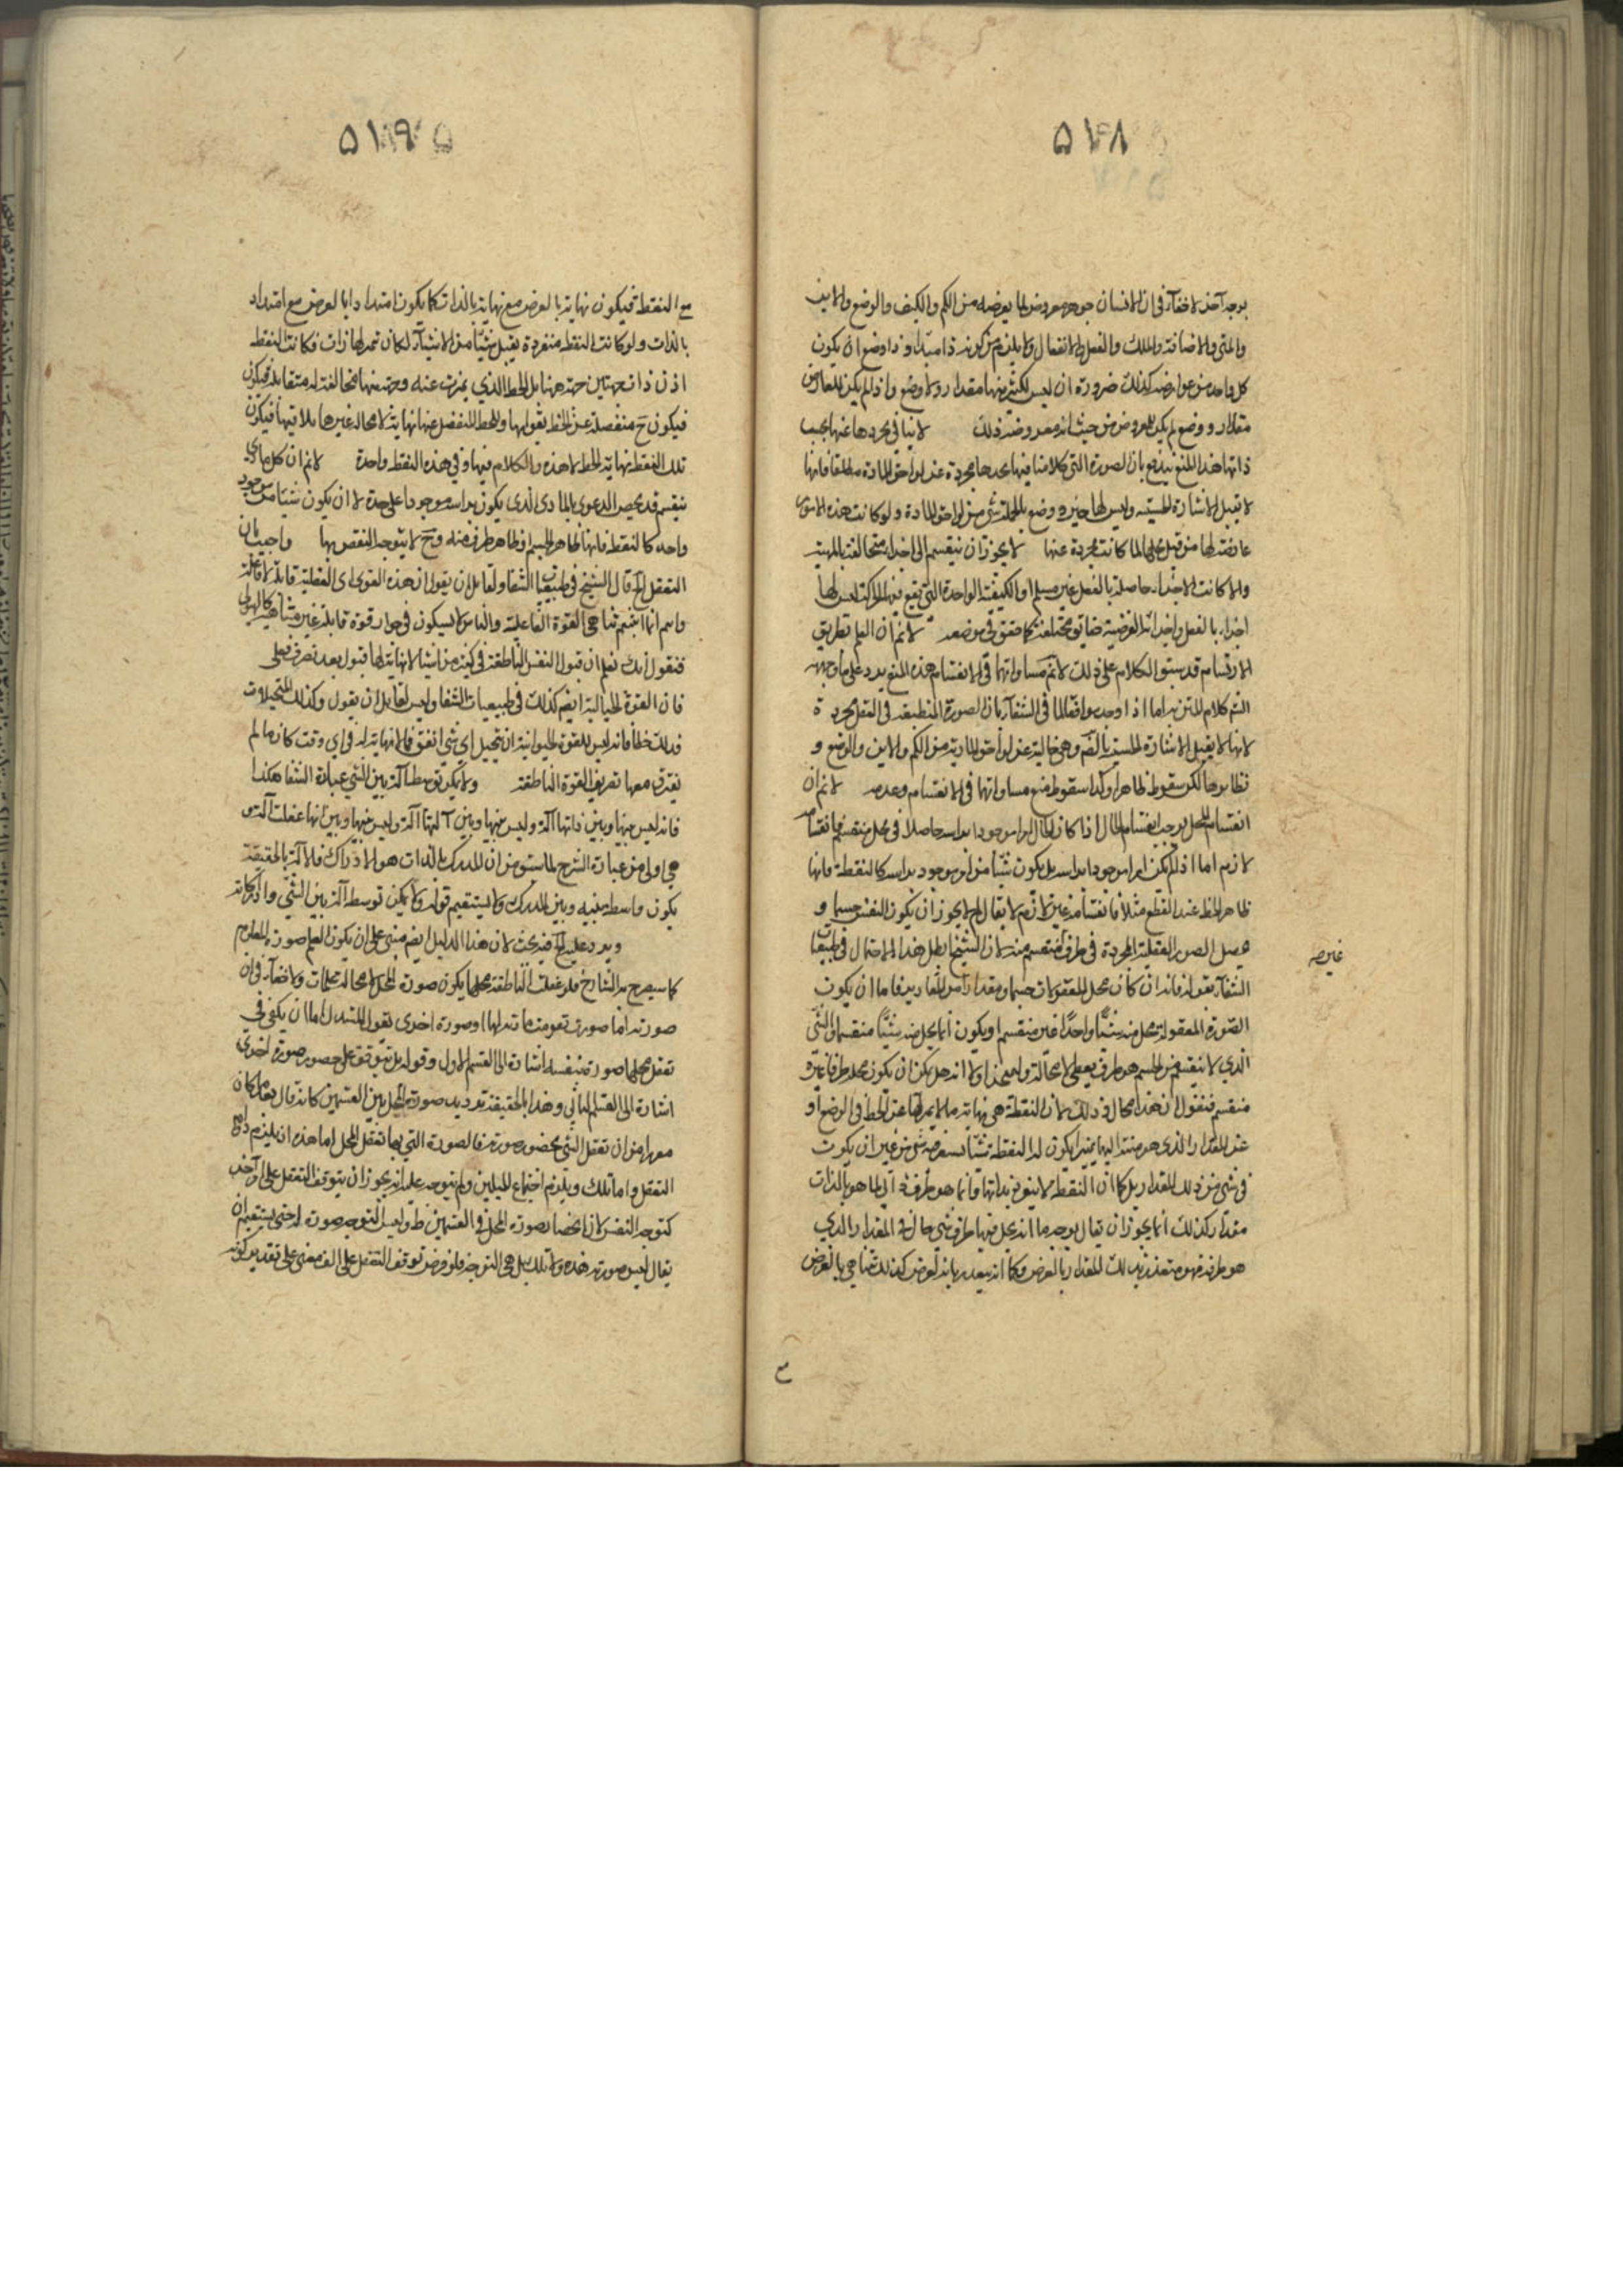 ٥١٨
بوجه آخر لا خفاء فى ان الانسان جوهر معروض لما يعرضه من الكم والكيف والوضع والاين
والمتى والاضافة والملك والفعل والانفعال ولا يلزم من كونه ذا مبدأ وذا وضع ان يكون
كل واحد من عوارضه كذلك ضرورة ان ليس لكثير منها مقدار ولا وضع واذا لم يكن للعارض
مقدار ووضع لم يكن للمعروض من حيث انه معروضه ذلك لا ينافى تجردها عنها بحسب
ذاتها هذا المنع يندفع بان الصورة التى كلامنا فيها نجدها مجردة عن لواحق المادة مطلقا فانها
لا تقبل الاشارة الحسية وليس لها حيز و وضع بالجملة شئ من لواحق المادة ولو كانت هذه الامور
عارضة لها من قبل محلها لما كانت مجردة عنها لا يجوز ان ينقسم الى اجزاء متخالفة بالمهية
والا كانت الاجزاء حاصلة بالفعل غير مسلم او الكيفية الواحدة التى تقع فيها الحركة ليس لها
اجزاء بالفعل واجزائه الفرضية متخالفة كما حقق فى موضعه لانم ان العلم بطريق
الارتسام قد سبق الكلام على ذلك لانم مساواتها فى الانقسام هذا المنع يرد على ما وجه به
الش كلام المتن اما اذا وجه موافقا لما فى الشفاء بان الصورة المنطبعة فى العقل مجردة
لانها لا تقبل الاشارة الحسية بالضم وهى خالية عن لواحق المادية من الكم والاين والوضع و
نظايرها لكن سقوط ظاهرا وكذا سقوط منع مساواتها فى الانقسام وعدمه لانم ان
انقسام المحل يوجب انقسام الحال اذا كان الحال امرا موجودا براسه حاصلا فى محل منقسم فانقسامه
لازم اما اذا لم يكن امرا موجودا براسه بل يكون شيئا من امر موجود براسه كالنقطة فانها
ظاهر الخط عند القطع مثلا فانقسامه غير لازم لا يقال لم لا يجوز ان يكون النفس جسما و
يحصل الصور العقلية المجردة فى طرف غير منقسم منه لان الشيخ ابطل هذا الاحتمال فى طبيعيات
الشفاء بقوله فانه ان كان محل المعقولات جسما ومقدارا من المقادير فاما ان يكون
الصورة المعقولة تحل منه شيئا واحدا غير منقسم او يكون انما يحل منه شيئا منقسما والشئ
الذى لا ينقسم من الجسم هو طرف نقطى لا محالة ولنمتحن اولا انه هل يمكن ان يكون محله طرفا غير
منقسم فنقول ان هذا محال وذلك لان النقطة هى نهاية ما لا يميز لها عن الخط فى الوضع او
عن المقدار الذى هو منته اليها تميزا يكون له النقطة شيئا يستقر فيه شئ من غير ان يكون
فى شئ من ذلك المقدار بل كما ان النقطة لا ينفرد بذاتها وانما هو طرف ذاتى لما هو بالذات
مقدار كذلك انما يجوز ان يقال بوجه ما انه يحل فيها طرف شئ حال فى المقدار الذى
هو طرفه فهو متقدر بذلك المقدار بالعرض وكما انه يتقدر به بالعرض كذلك يتناهى بالعرض
غير صه
مع
٥١٩
مع النقطة فيكون نهاية بالعرض مع نهاية بالذات كما يكون امتدادا بالعرض مع امتداد
بالذات ولو كانت النقطة منفردة يقبل شيئا من الاشياء لكان تميز لها ذات فكانت النقطة
اذن ذات جهتين جهة منها يلى الخط الذى تميزت عنه وجهة منها مخالفة له مقابلة فيكون
فيكون ح منفصلة عن الخط بقوامها وللخط المنفصل عنها نهاية لا محالة غيرها يلاقيها فيكون
تلك النقطة نهاية الخط لا هذه والكلام فيها وفى هذه النقطة واحدة لانم ان كل مادى
ينقسم قد يخص الدعوى بالمادى الذى يكون براسه موجودا على حدة لا ان يكون شيئا من موجود
واحد كالنقطة فانها ظاهر الجسم او ظاهر طرف منه وح لا يتوجه النقض بها واجيب بان
التعقل آه قال الشيخ فى طبيعيات الشفا ولقائل ان يقول ان هذه القوى اى العقلية قابلة لا فاعلة
وانتم انما اثبتم تناهى القوة الفاعلية والناس لا يشكون فى جواز قوة قابلة غير متناهية كالهيولى
فنقول انك تعلم ان قبول النفس الناطقة فى كثير من اشياء لا نهاية لها قبول بعد تصرف فعلى
فان القوة الخيالية ايضا كذلك فى طبيعيات الشفا وليس لقايل ان يقول وكذلك المتخيلات
فذلك خطا فانه ليس للقوة الحيوانية ان تتخيل اى شئ اتفق مما لا نهاية له فى اى وقت كان ما لم
يقترن معها تصريف القوة الناطقة ولا يمكن توسط آلة بين الشئ عبارة الشفا هكذا
فانه ليس بينها وبين ذاتها آلة وليس بينها وبين آلتها آلة وليس بينها وبين انها عقلت آلة
هى اولى من عبارة الشرح لما سبق من ان المدرك بالذات هو الادراك فلا آلة بالحقيقة
يكون واسطة بينه وبين المدرك ولا يستقيم قوله ولا يمكن توسط آلة بين الشئ وادراكاته
ويرد عليه آه فيه بحث لان هذا الدليل ايضا مبنى على ان يكون العلم صورة المعلوم
كما سيصرح به الشارح فلو عقلت الناطقة محلها يكون صورة المحل لا محالة ولا خفاء فى ان
صورته اما صورته تقومت مادته لها او صورة اخرى فقول المستدل اما ان يكفى فى
تعقل محلها صورة نفسه اشارة الى القسم الاول وقوله بل يتوقف على حصور صورة اخرى
اشارة الى القسم الثانى وهذا بالحقيقة ترديد صورة المحل بين القسمين كانه قال بعد ما كان
معه امر من ان تعقل الشئ بحضور صورته فالصورة التى بها تعقل المحل اما هذه ان يلزم دوام
التعقل واما تلك ويلزم اجتماع المثلين ولم يتوجه عليه انه يجوز ان يتوقف التعقل على امر آخر
كتوجه النفس لان انحصار صورة المحل فى القسمين ظ وليس التوجه صورة له حتى يستقيم ان
يقال ليس صورته هذه ولا تلك بل هى التوجه فلو فرض توقف التعقل على الف معنى على تقدير كونه